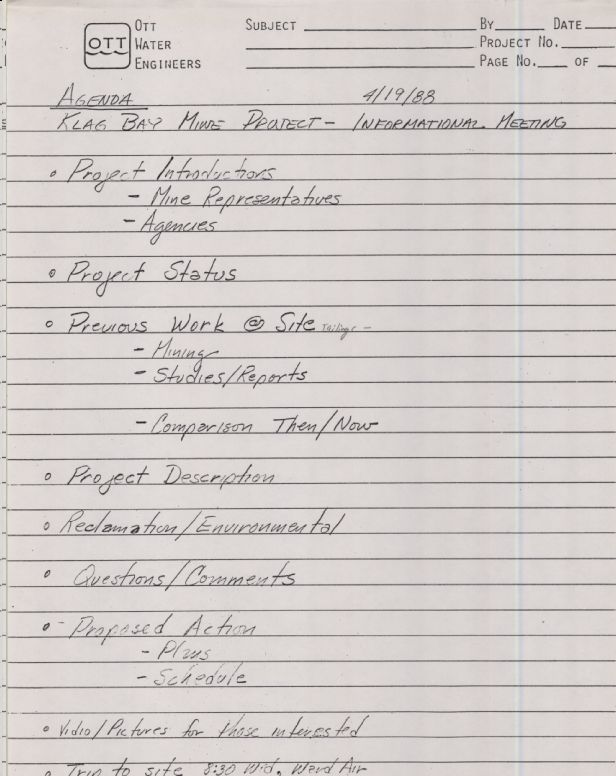 OTT
OTT
WATER
ENGINEERS
SUBJECT
BY DATE
PROJECT NO.
PAGE NO. OF
AGENDA 4/19/88
KLAG BAY MINE PROJECT - INFORMATIONAL MEETING
• Project Introductions
- Mine Representatives
- Agencies
• Project Status
• Previous Work @ Site Tailings -
- Mining
- Studies/Reports
- Comparison Then/Now
• Project Description
• Reclamation/Environmental
• Questions/Comments
• - Proposed Action
- Plans
- Schedule
• Vidio/Pictures for those interested
• Trip to site 8:30 Wed. Ward Air